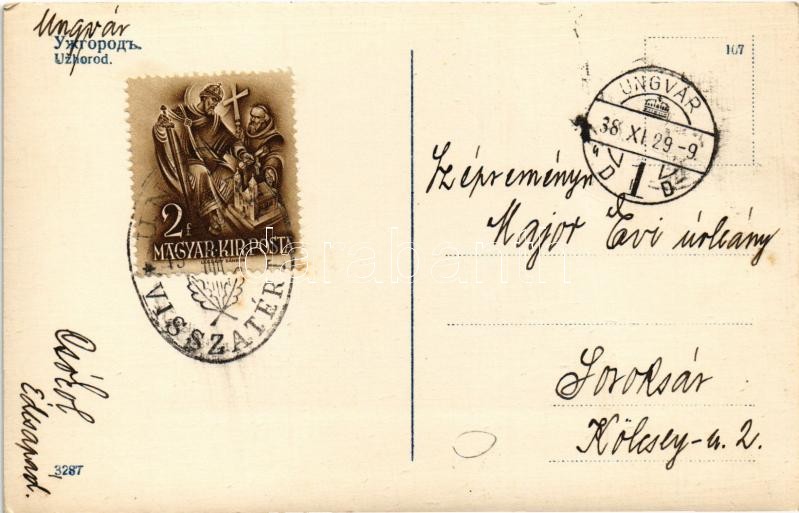 Ungvár
Ужгородъ.
Užhorod.
2f
MAGYAR·KIR·POSTA
VISSZATÉRT
Csókol
Édesapád.
3287
107
UNGVÁR
38 XI.29-9
1
D D
Szépreményű
Major Évi úrleány
Soroksár
Kölcsey-u. 2.
darabanth